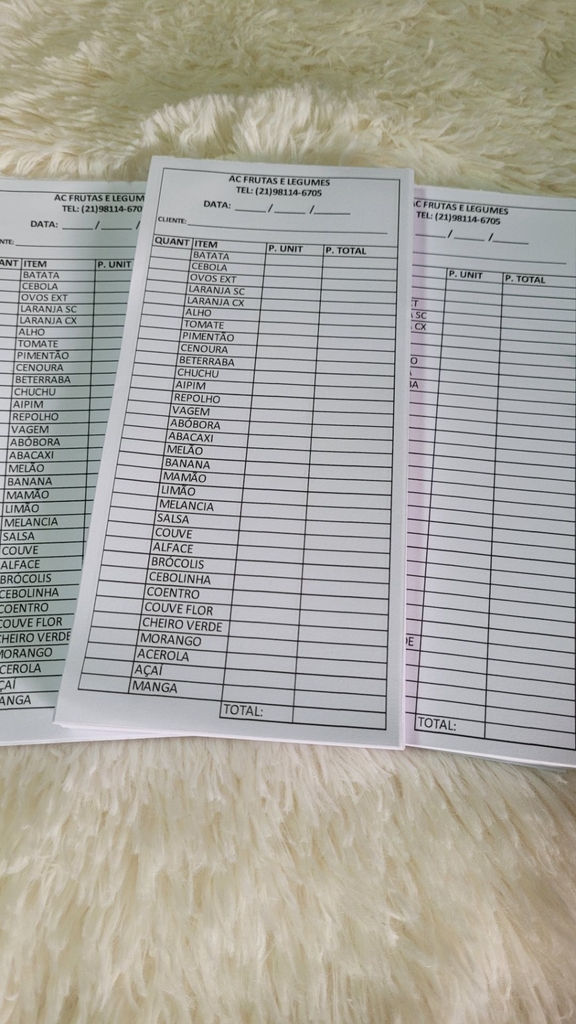 AC FRUTAS E LEGUMES
TEL: (21)98114-670
DATA: _____ / _____ /
NTE:
ANT ITEM P. UNIT
BATATA
CEBOLA
OVOS EXT
LARANJA SC
LARANJA CX
ALHO
TOMATE
PIMENTÃO
CENOURA
BETERRABA
CHUCHU
AIPIM
REPOLHO
VAGEM
ABÓBORA
ABACAXI
MELÃO
BANANA
MAMÃO
LIMÃO
MELANCIA
SALSA
COUVE
ALFACE
BRÓCOLIS
CEBOLINHA
COENTRO
COUVE FLOR
CHEIRO VERDE
MORANGO
ACEROLA
ÇAÍ
ANGA
AC FRUTAS E LEGUMES
TEL: (21)98114-6705
DATA: _____ / _____ / _____
CLIENTE: _____
QUANT ITEM P. UNIT P. TOTAL
BATATA
CEBOLA
OVOS EXT
LARANJA SC
LARANJA CX
ALHO
TOMATE
PIMENTÃO
CENOURA
BETERRABA
CHUCHU
AIPIM
REPOLHO
VAGEM
ABÓBORA
ABACAXI
MELÃO
BANANA
MAMÃO
LIMÃO
MELANCIA
SALSA
COUVE
ALFACE
BRÓCOLIS
CEBOLINHA
COENTRO
COUVE FLOR
CHEIRO VERDE
MORANGO
ACEROLA
AÇAÍ
MANGA
TOTAL:
C FRUTAS E LEGUMES
TEL: (21)98114-6705
/ _____ / _____
P. UNIT P. TOTAL
SC
CX
TOTAL: